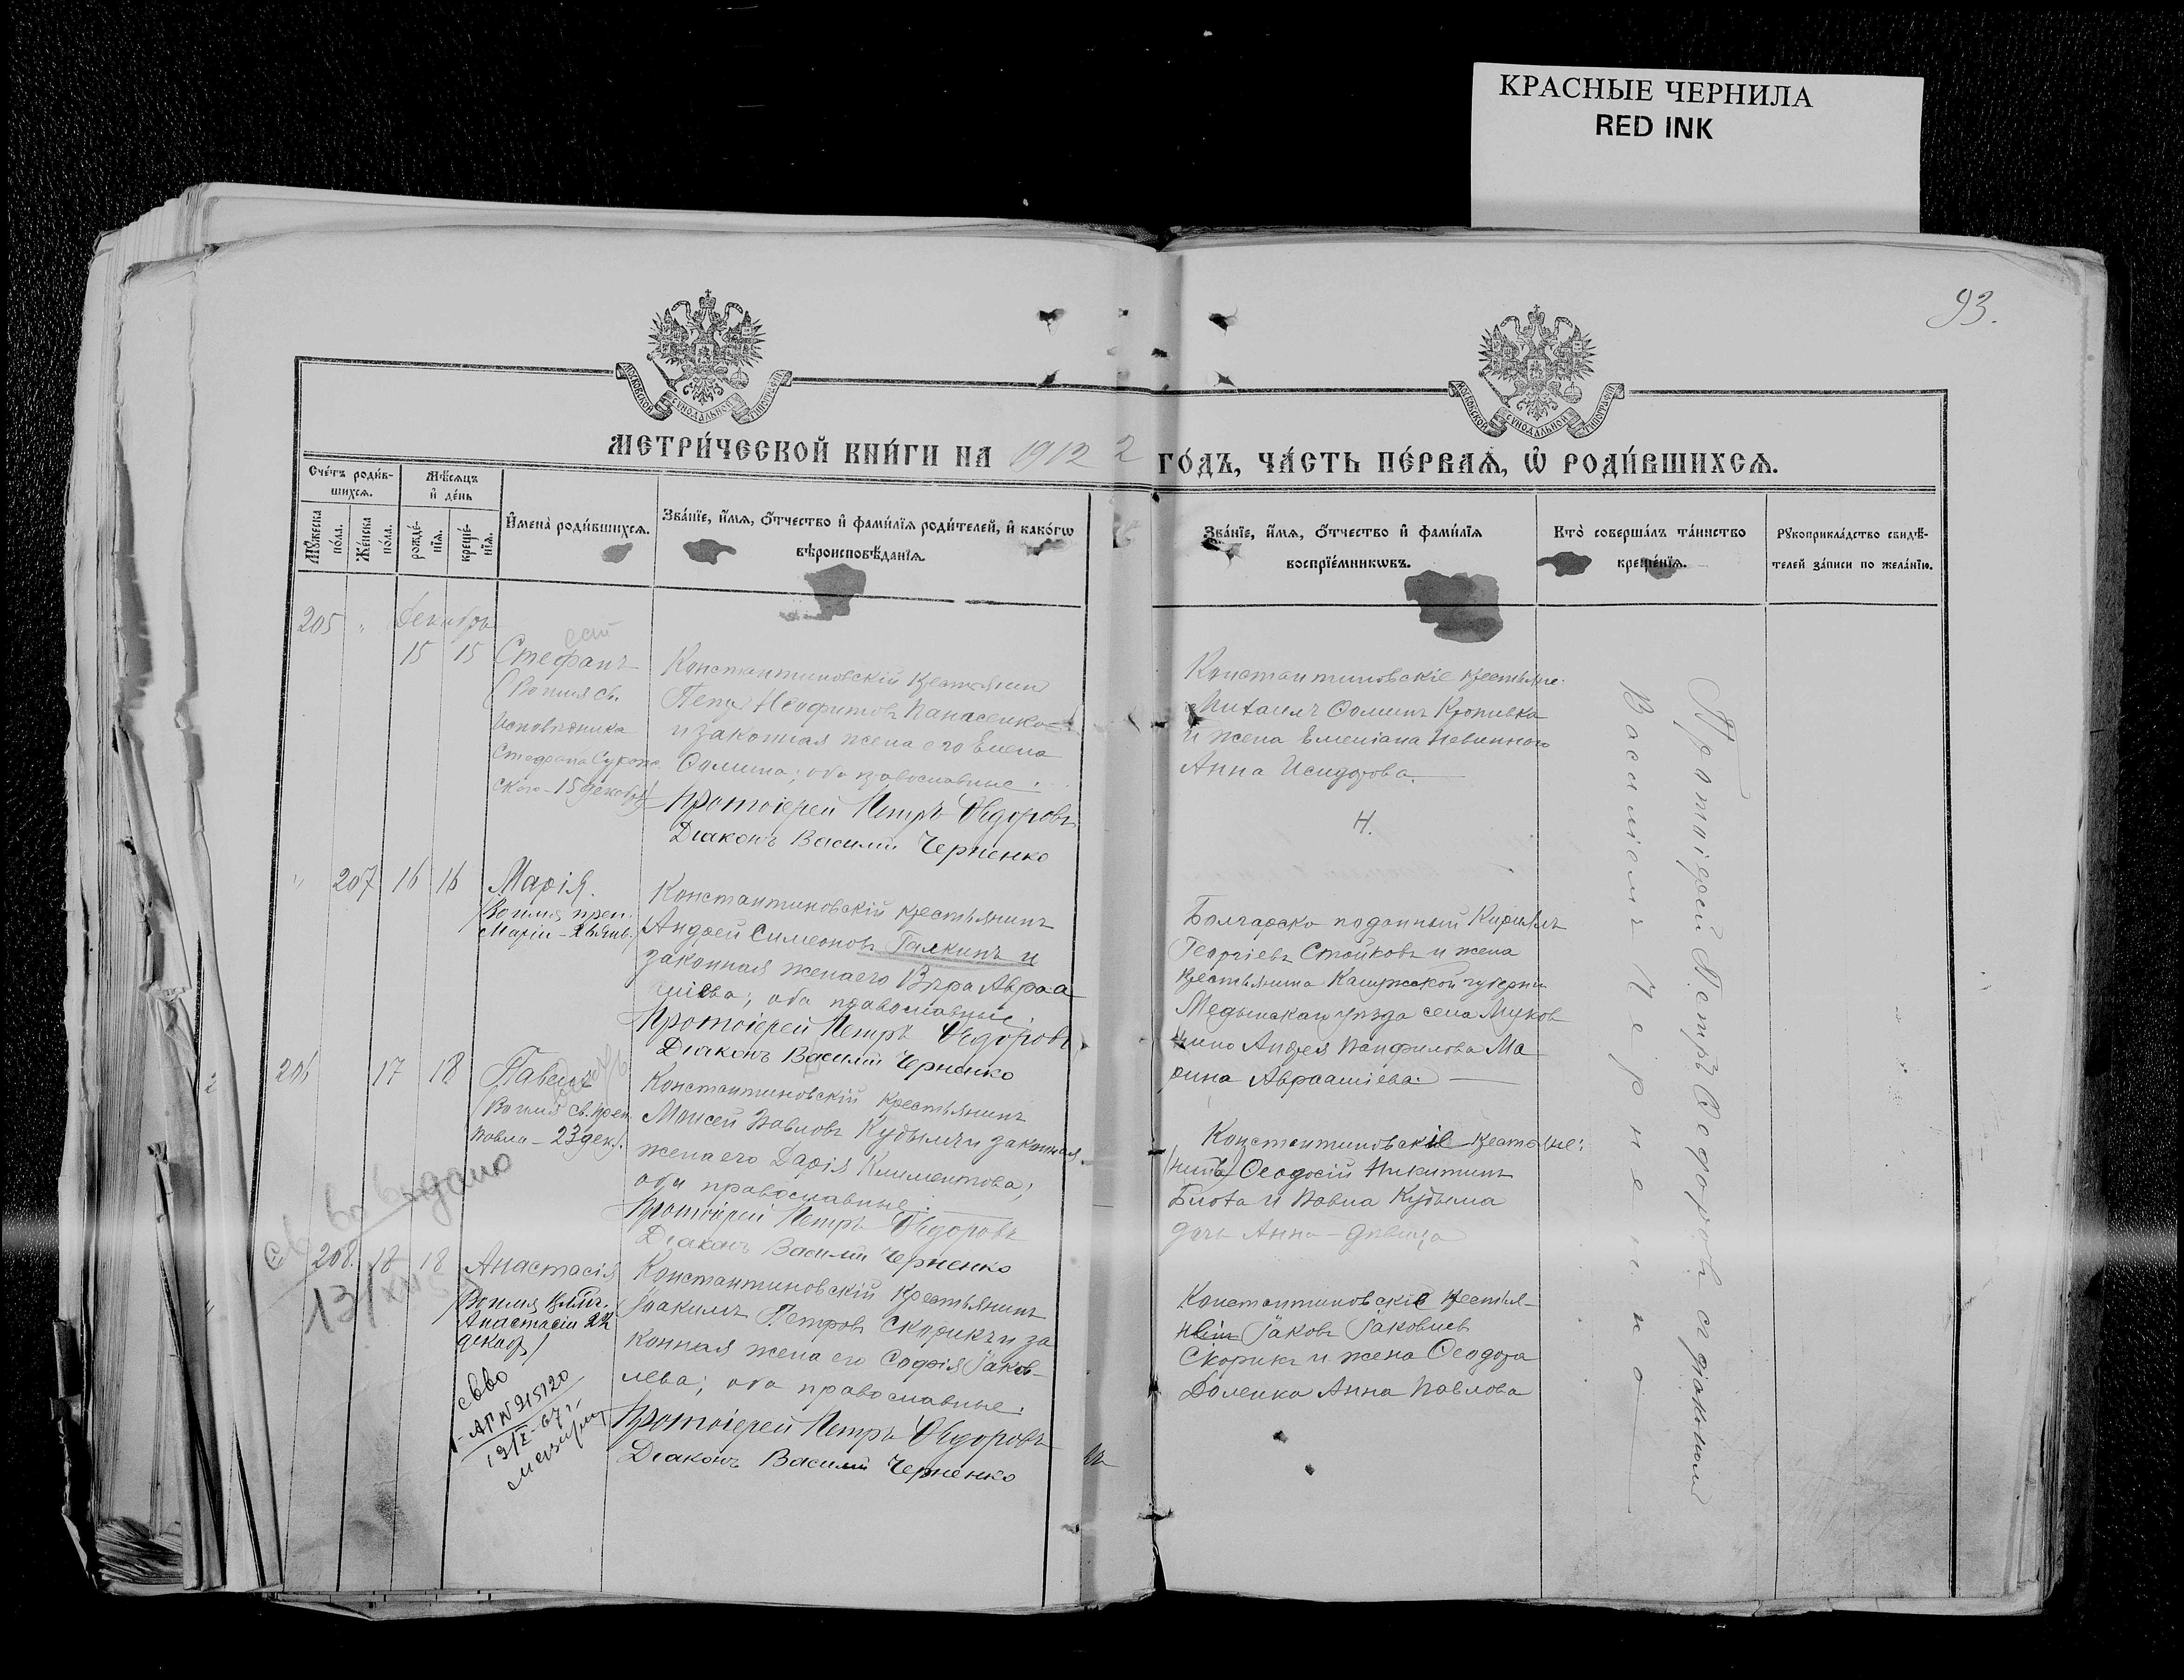 КРАСНЫЕ ЧЕРНИЛА
RED INK
93.
МОСКОВСКОЙ СѴНОДАЛЬНОЙ ТИПОГРАФІИ
МОСКОВСКОЙ СѴНОДАЛЬНОЙ ТИПОГРАФІИ
МЕТРИ́ЧЕСКОЙ КНИ́ГИ НА 1912 2 ГО́ДЪ, ЧА́СТЬ ПЕ́РВАѦ, Ѡ РОДИ́ВШИХСѦ.
Сче́тъ роди́в-
шихсѧ.
Мѣ́сѧцъ
и де́нь
Мꙋ́жеска
по́ла.
Же́нска
по́ла.
рожде́-
нїѧ.
креще́-
нїѧ.
И҆мена̀ роди́вшихсѧ.
Зва́нїе, и҆́мѧ, ѻ҆́тчество и҆ фами́лїѧ роди́телей, и҆ како́гѡ
вѣроисповѣ́данїѧ.
Зва́нїе, и҆́мѧ, ѻ҆́тчество и҆ фами́лїѧ
воспрїе́мникѡвъ.
Кто̀ соверша́лъ та́инство
креще́нїѧ.
Рꙋкоприкла́дство свидѣ́-
телей за́писи по жела́нїю.
205 " Декабрь
15 15 Стефанъ
(Во имя св.
исповѣдника
Стефана Сурож-
скаго - 15 декабря)
Константиновскій крестьянинъ
Петръ Неофитовъ Панасенко
и законная жена его Елена
Ѳомина; оба православные.
Протоіерей Петръ Ѳедоровъ
Діаконъ Василій Черненко
Константиновскіе крестьяне:
Михаилъ Ѳоминъ Кропивка
и жена Емеліана Невиннаго
Анна Исидорова.
Н.
" 207 16 16 Марія.
(Во имя преп.
Маріи - 26 янв.)
Константиновскій крестьянинъ
Андрей Симеоновъ Галкинъ и
законная жена его Вѣра Авраа
міева; оба православные.
Протоіерей Петръ Ѳедоровъ
Діаконъ Василій Черненко
Болгарско поданный Кириллъ
Георгіевъ Стойковъ и жена
крестьянина Калужской губерніи
Медынскаго уѣзда села
Андрея Панфилова Ма
рина Авраамiева.
206 17 18 Павелъ
(Во имя св. преп.
Павла - 23 дек.)
Константиновскій крестьянинъ
Моисей Павловъ Кудымъ и законная
жена его Дарія Климентова;
оба православные.
Протоіерей Петръ Ѳедоровъ
Діаконъ Василій Черненко
Константиновскіе крестьяне:
Ѳеодосій Никитинъ
Блоха и Павла Кудыма
дочь Анна - дѣвица
св во выдано
13/XII
208. 18 18 Анастасія
(Во имя вмч.
Анастасіи 22
декаб)
Константиновскій крестьянинъ
Іоакимъ Петровъ Скорикъ и за
конная жена его Софія Іаков-
лева; оба православные.
Протоіерей Петръ Ѳедоровъ
Діаконъ Василій Черненко
Константиновскіе крестья-
не Іаковъ Іаковлевъ
Скорикъ и жена Ѳеодора
Доленка Анна Павлова
свво
I-АП №215120
19/I-67г.
Протоіерей Петръ Ѳедоровъ съ діакономъ
Василіемъ Черненко